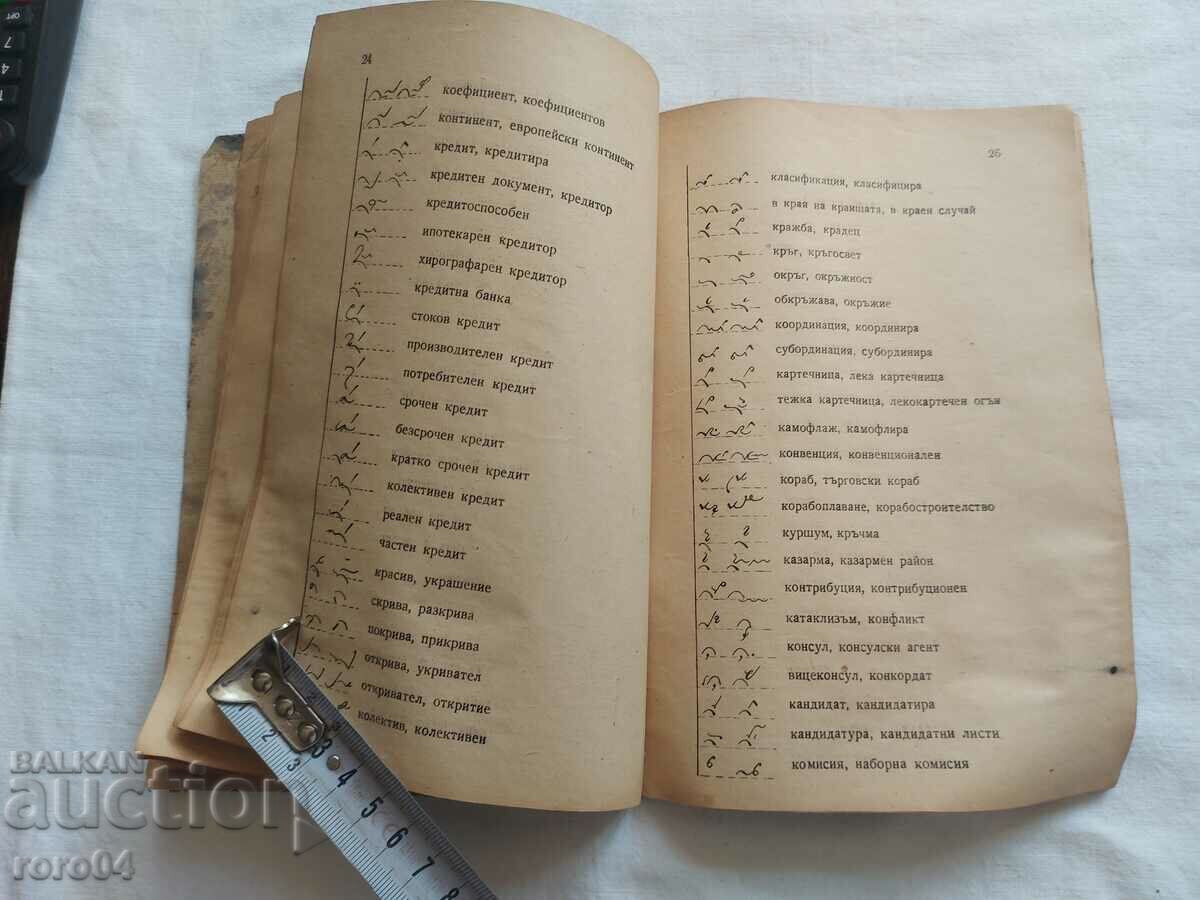 24
коефициент, коефициентов
континент, европейски континент
кредит, кредитира
кредитен документ, кредитор
кредитоспособен
ипотекарен кредитор
хирографарен кредитор
кредитна банка
стоков кредит
производителен кредит
потребителен кредит
срочен кредит
безсрочен кредит
кратко срочен кредит
колективен кредит
реален кредит
частен кредит
красив, украшение
скрива, разкрива
покрива, прикрива
открива, укривател
откривател, откритие
колектив, колективен
25
класификация, класифицира
в края на краищата, в краен случай
кражба, крадец
кръг, кръгосвет
окръг, окръжност
обкръжава, окръжие
координация, координира
субординация, субординира
картечница, лека картечница
тежка картечница, лекокартечен огън
камофлаж, камофлира
конвенция, конвенционален
кораб, търговски кораб
корабоплаване, корабостроителство
куршум, кръчма
казарма, казармен район
контрибуция, контрибуционен
катаклизъм, конфликт
консул, консулски агент
вицеконсул, конкордат
кандидат, кандидатира
кандидатура, кандидатни листи
комисия, наборна комисия
OPT
7
4
1
2 3 4 5 6 7 8
2 3
BALKAN
auction
roro04